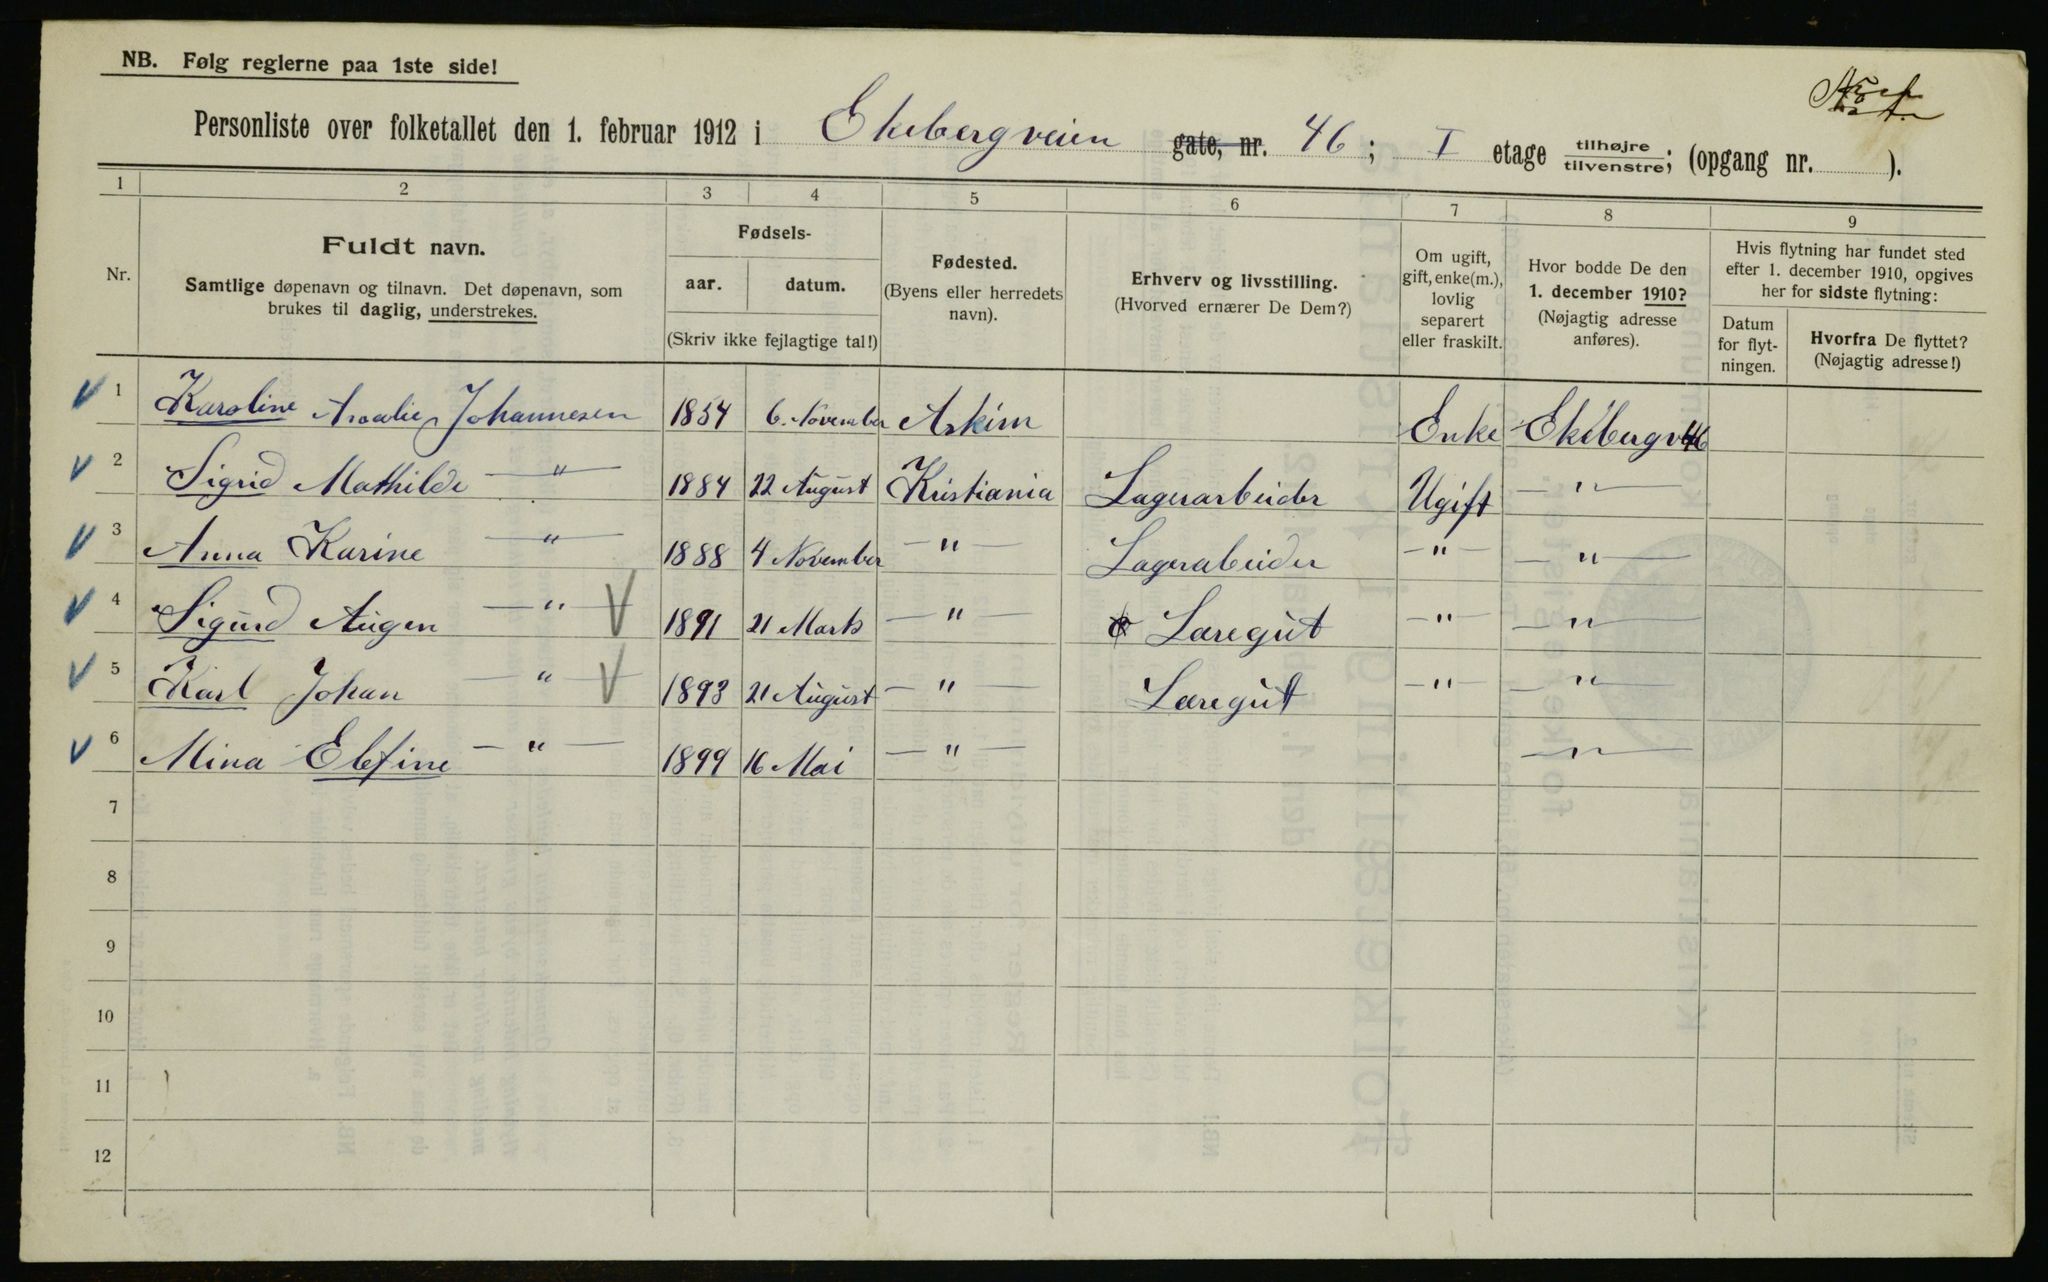 NB. Følg reglerne paa 1ste side!
Personliste over folketallet den 1. februar 1912 i Ekebergveien gate, nr. 46; I etage tilhøjre/tilvenstre; (opgang nr. ).
1 2 3 4 5 6 7 8 9
Nr.
Fuldt navn.
Samtlige døpenavn og tilnavn. Det døpenavn, som
brukes til daglig, understrekes.
Fødsels-
aar. datum.
(Skriv ikke fejlagtige tal!)
Fødested.
(Byens eller herredets
navn).
Erhverv og livsstilling.
(Hvorved ernærer De Dem?)
Om ugift,
gift, enke(m.),
lovlig
separert
eller fraskilt.
Hvor bodde De den
1. december 1910?
(Nøjagtig adresse
anføres).
Hvis flytning har fundet sted
efter 1. december 1910, opgives
her for sidste flytning:
Datum
for flyt-
ningen.
Hvorfra De flyttet?
(Nøjagtig adresse!)
1 Karoline Amalie Johannesen 1854 6. November Askim Enke Ekebergv 46
2 Sigrid Mathilde —"— 1884 22 August Kristiania Lagerarbeider Ugift —"—
3 Anna Karine —"— 1888 4 November —"— Lagerabeider —"— —"—
4 Sigurd Augen —"— 1891 21 Marts —"— Læregut —"— —"—
5 Karl Johan —"— 1893 21 August —"— Læregut —"— —"—
6 Mina Elefine —"— 1899 16 Mai —"— —"—
7
8
9
10
11
12